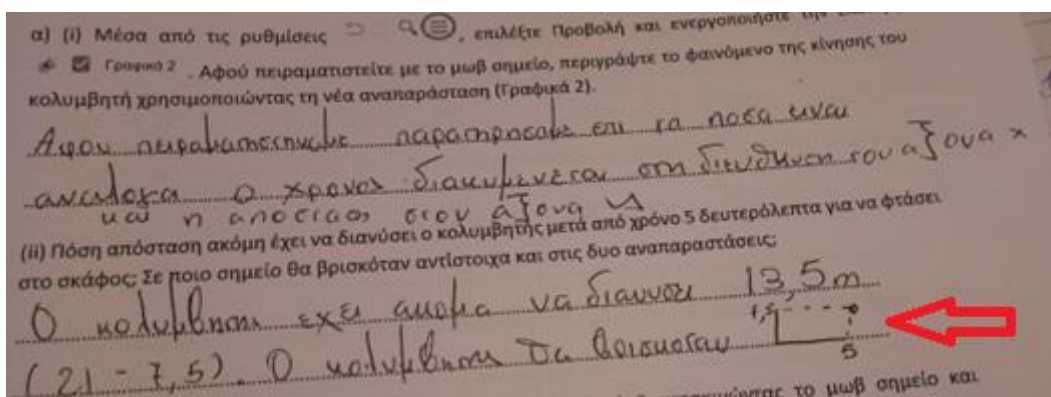 α) (i) Μέσα από τις ρυθμίσεις , επιλέξτε Προβολή και ενεργοποιήστε την
Γραφικά 2 . Αφού πειραματιστείτε με το μωβ σημείο, περιγράψτε το φαινόμενο της κίνησης του
κολυμβητή χρησιμοποιώντας τη νέα αναπαράσταση (Γραφικά 2).
Αφου πειραματιστηκαμε παρατηρησαμε οτι τα ποσα ειναι
αναλογα ο χρονος διακυμενεται στη διευθηνση του αξονα x
και η αποσταση στον αξονα y
(ii) Πόση απόσταση ακόμη έχει να διανύσει ο κολυμβητής μετά από χρόνο 5 δευτερόλεπτα για να φτάσει
στο σκάφος; Σε ποιο σημείο θα βρισκόταν αντίστοιχα και στις δυο αναπαραστάσεις;
Ο κολυμβητης εχει ακομα να διανυσει 13,5m
(21 - 7,5). Ο κολυμβητης θα βρισκοταν 7,5
5
το μωβ σημείο και